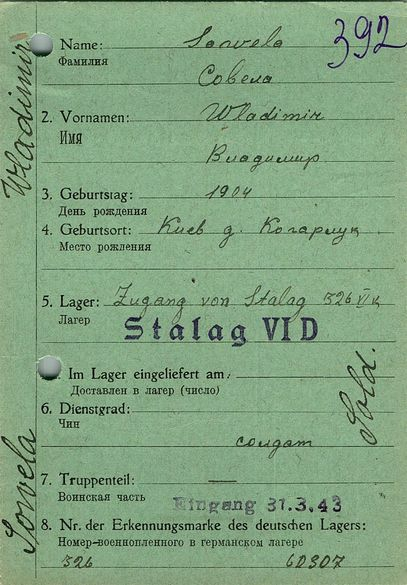 392
Name: Sowela
Фамилия
Совела
2. Vornamen: Wladimir
Имя
Владимир
3. Geburtstag: 1904
День рождения
4. Geburtsort: Киев д. Когарлук
Место рождения
5. Lager: Zugang von Stalag 326 VI K
Лагер
Stalag VI D
Im Lager eingeliefert am:
Доставлен в лагер (число)
6. Dienstgrad: Sold.
Чин
солдат
7. Truppenteil: —
Воинская часть
Eingang 31.3.43
8. Nr. der Erkennungsmarke des deutschen Lagers:
Номер-военнопленного в германском лагере
326 60307
Wladimir
Sowela